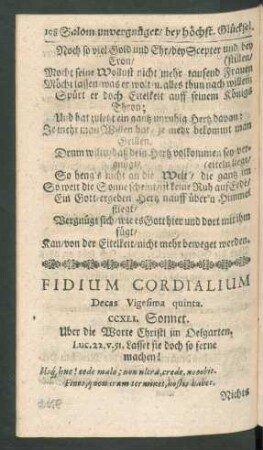 108 Salom unvergnüget/ bey höchst. Glücksel.
Noch so viel Gold und Ehr/bey Scepter und bey
Cron/ (stillen/
Mocht seine Wollust nicht mehr tausend Frauen
Möcht lassen/was er wolt/u. alles thun nach willen
Spürt er doch Eitelkeit auff seinem Königs
Thron:
Und hat zuletzt ein gantz unruhig Hertz davon:
Je mehr man Willen hat/ je mehr bekomt man
Grillen.
Drum wiltu/ daß dein Hertz vollkommen soy ver-
gnügt/ (eitelm liegt/
So heng's nicht an die Welt/ die gantz im
So weit die Sonne scheint/ist keine Ruh auf Erde/
Ein Gott-ergeben Hertz nauff über'n Himmel
fliegt/
Vergnügt sich/wie es Gott hier und dort mit ihm
fügt/
Kan/von der Eitelkeit/nicht mehr beweget werden.
FIDIUM CORDIALIUM
Decas Vigesima quinta.
CCXLI. Sonnet.
Uber die Worte Christi im Oelgarten,
Luc. 22, v. 51. Lasset sie doch so ferne
machen!
huc! cede malo; non ultra, crede,
Finus, quoniam terminet, hostis habet.
Nichts